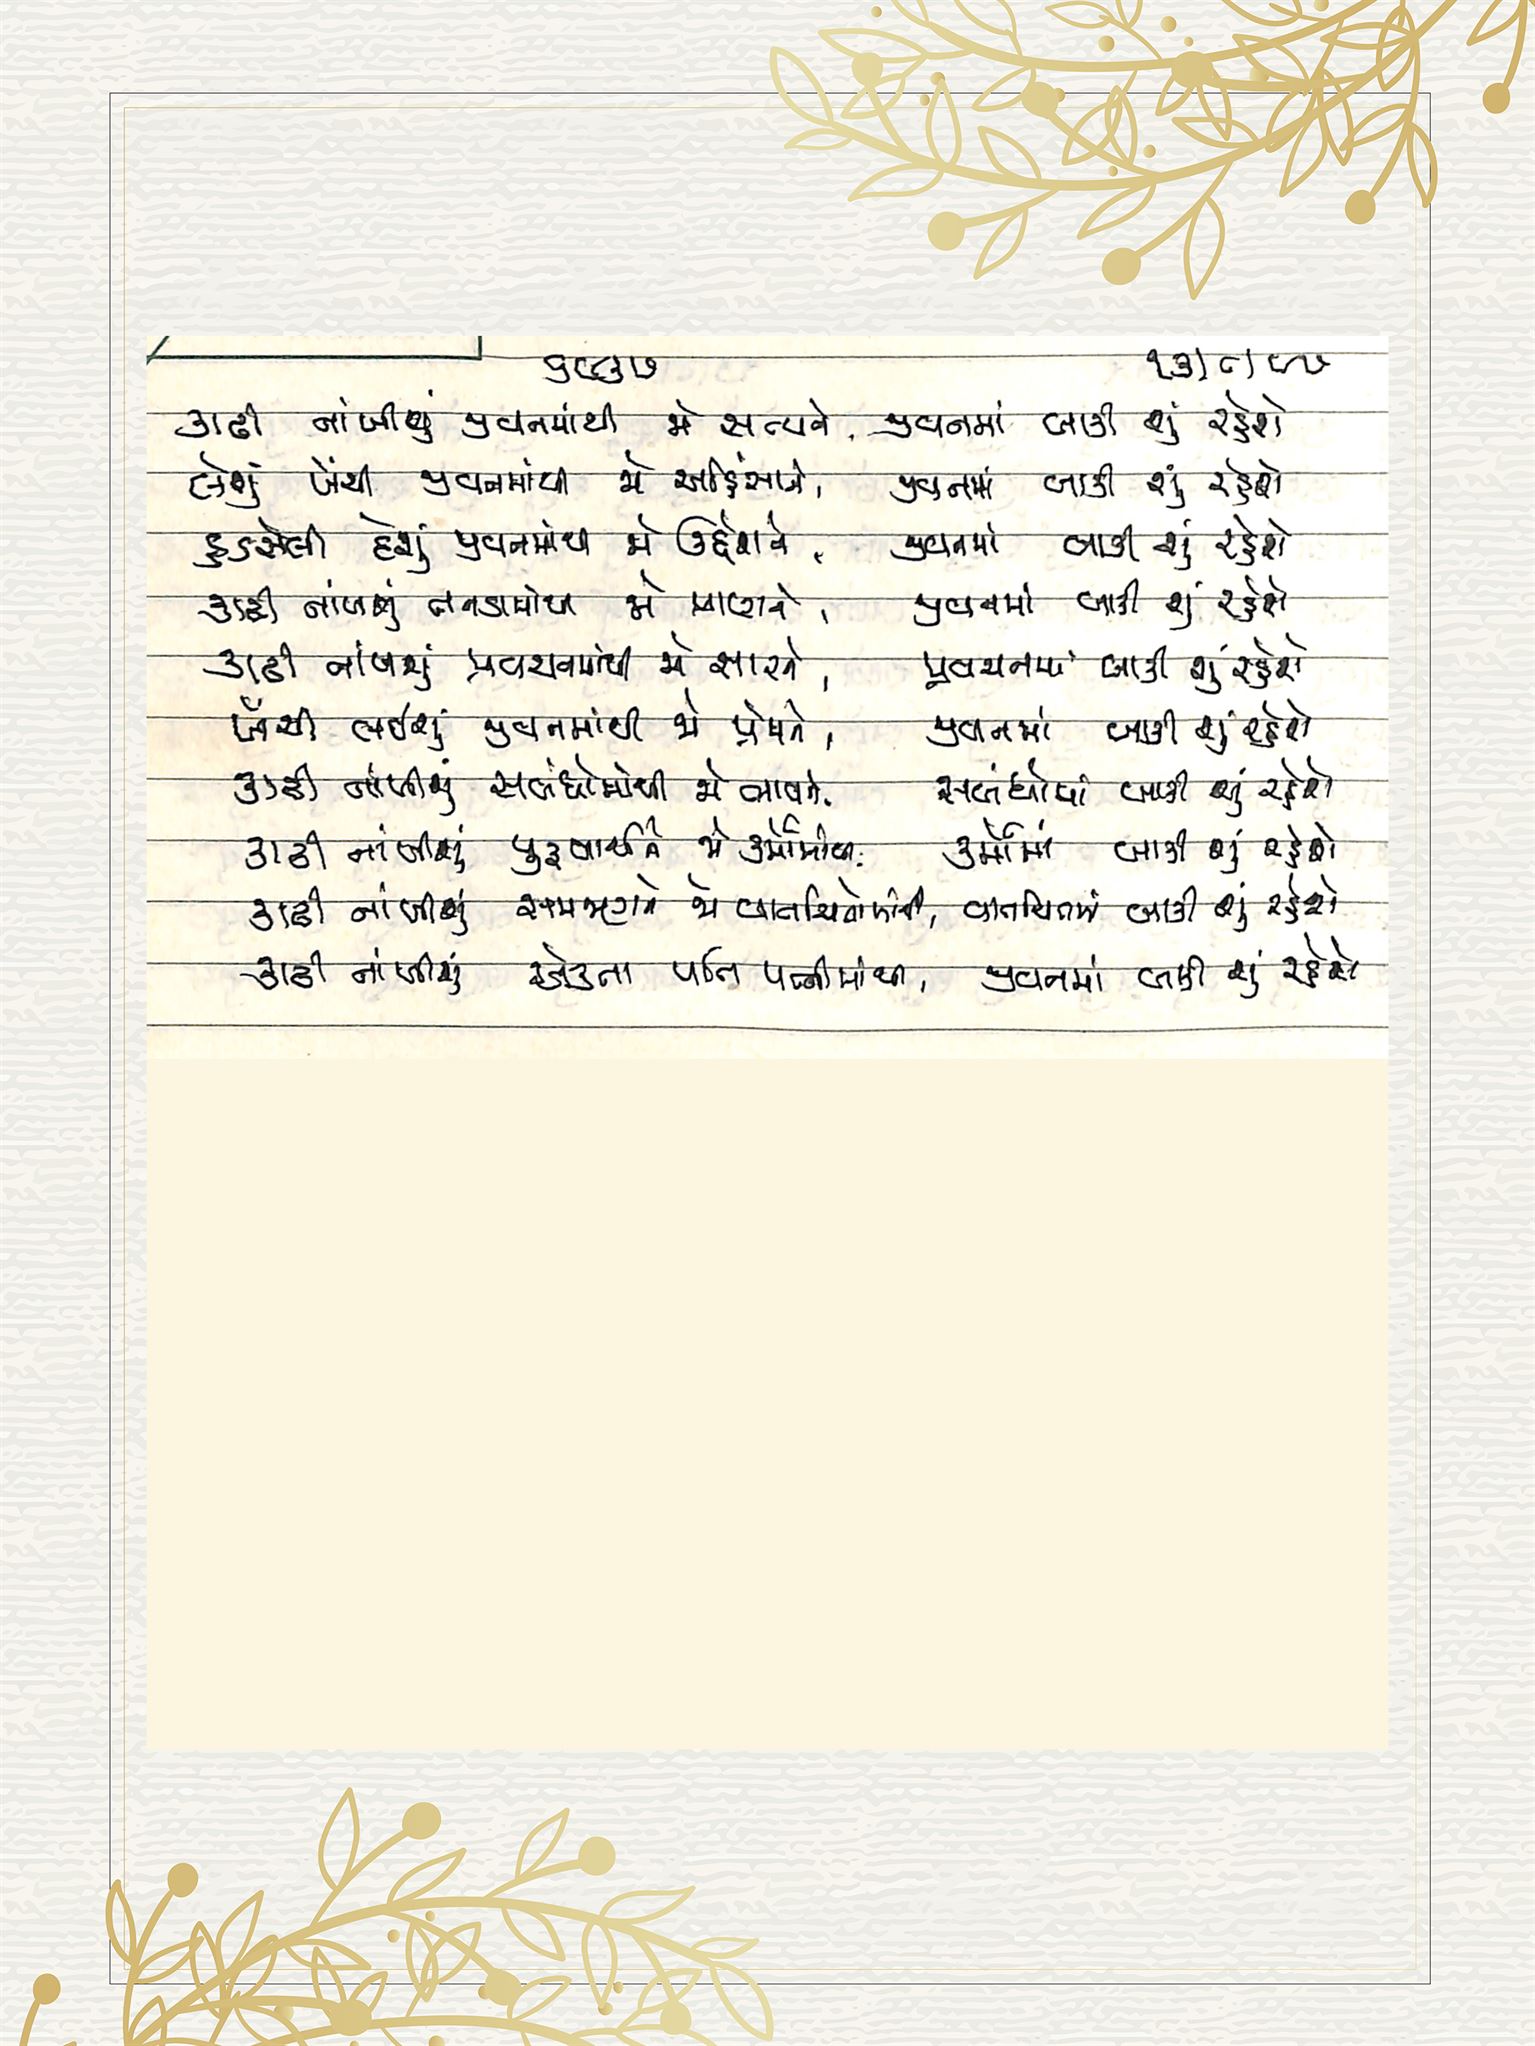 ૬૮૬૭
કાઢી નાંખીશું જીવનમાંથી જો સત્યને, જીવનમાં બાકી શું રહેશે
લેશું ખેંચી જીવનમાંથી જો અહિંસાને, જીવનમાં બાકી શું રહેશે
હડસેલી દેશું જીવનમાંથી જો ઉદ્દેશને, જીવનમાં બાકી શું રહેશે
કાઢી નાંખશું તનડામાંથી જો પ્રાણને, જીવનમાં બાકી શું રહેશે
કાઢી નાંખશું પ્રવચનમાંથી જો સારને, પ્રવચનમાં બાકી શું રહેશે
ખેંચી લઈશું જીવનમાંથી જો પ્રેમને, જીવનમાં બાકી શું રહેશે
કાઢી નાંખીશું સબંધોમાંથી જો ભાવને, સબંધોમાં બાકી શું રહેશે
કાઢી નાંખીશું પુરૂષાર્થને જો કર્મોમાંથી, કર્મોમાં બાકી શું રહેશે
કાઢી નાંખીશું સમજણને જો વાતચિતોમાંથી, વાતચિતમાં બાકી શું રહેશે
કાઢી નાંખીશું એકતા પતિ પત્નીમાંથી, જીવનમાં બાકી શું રહેશે